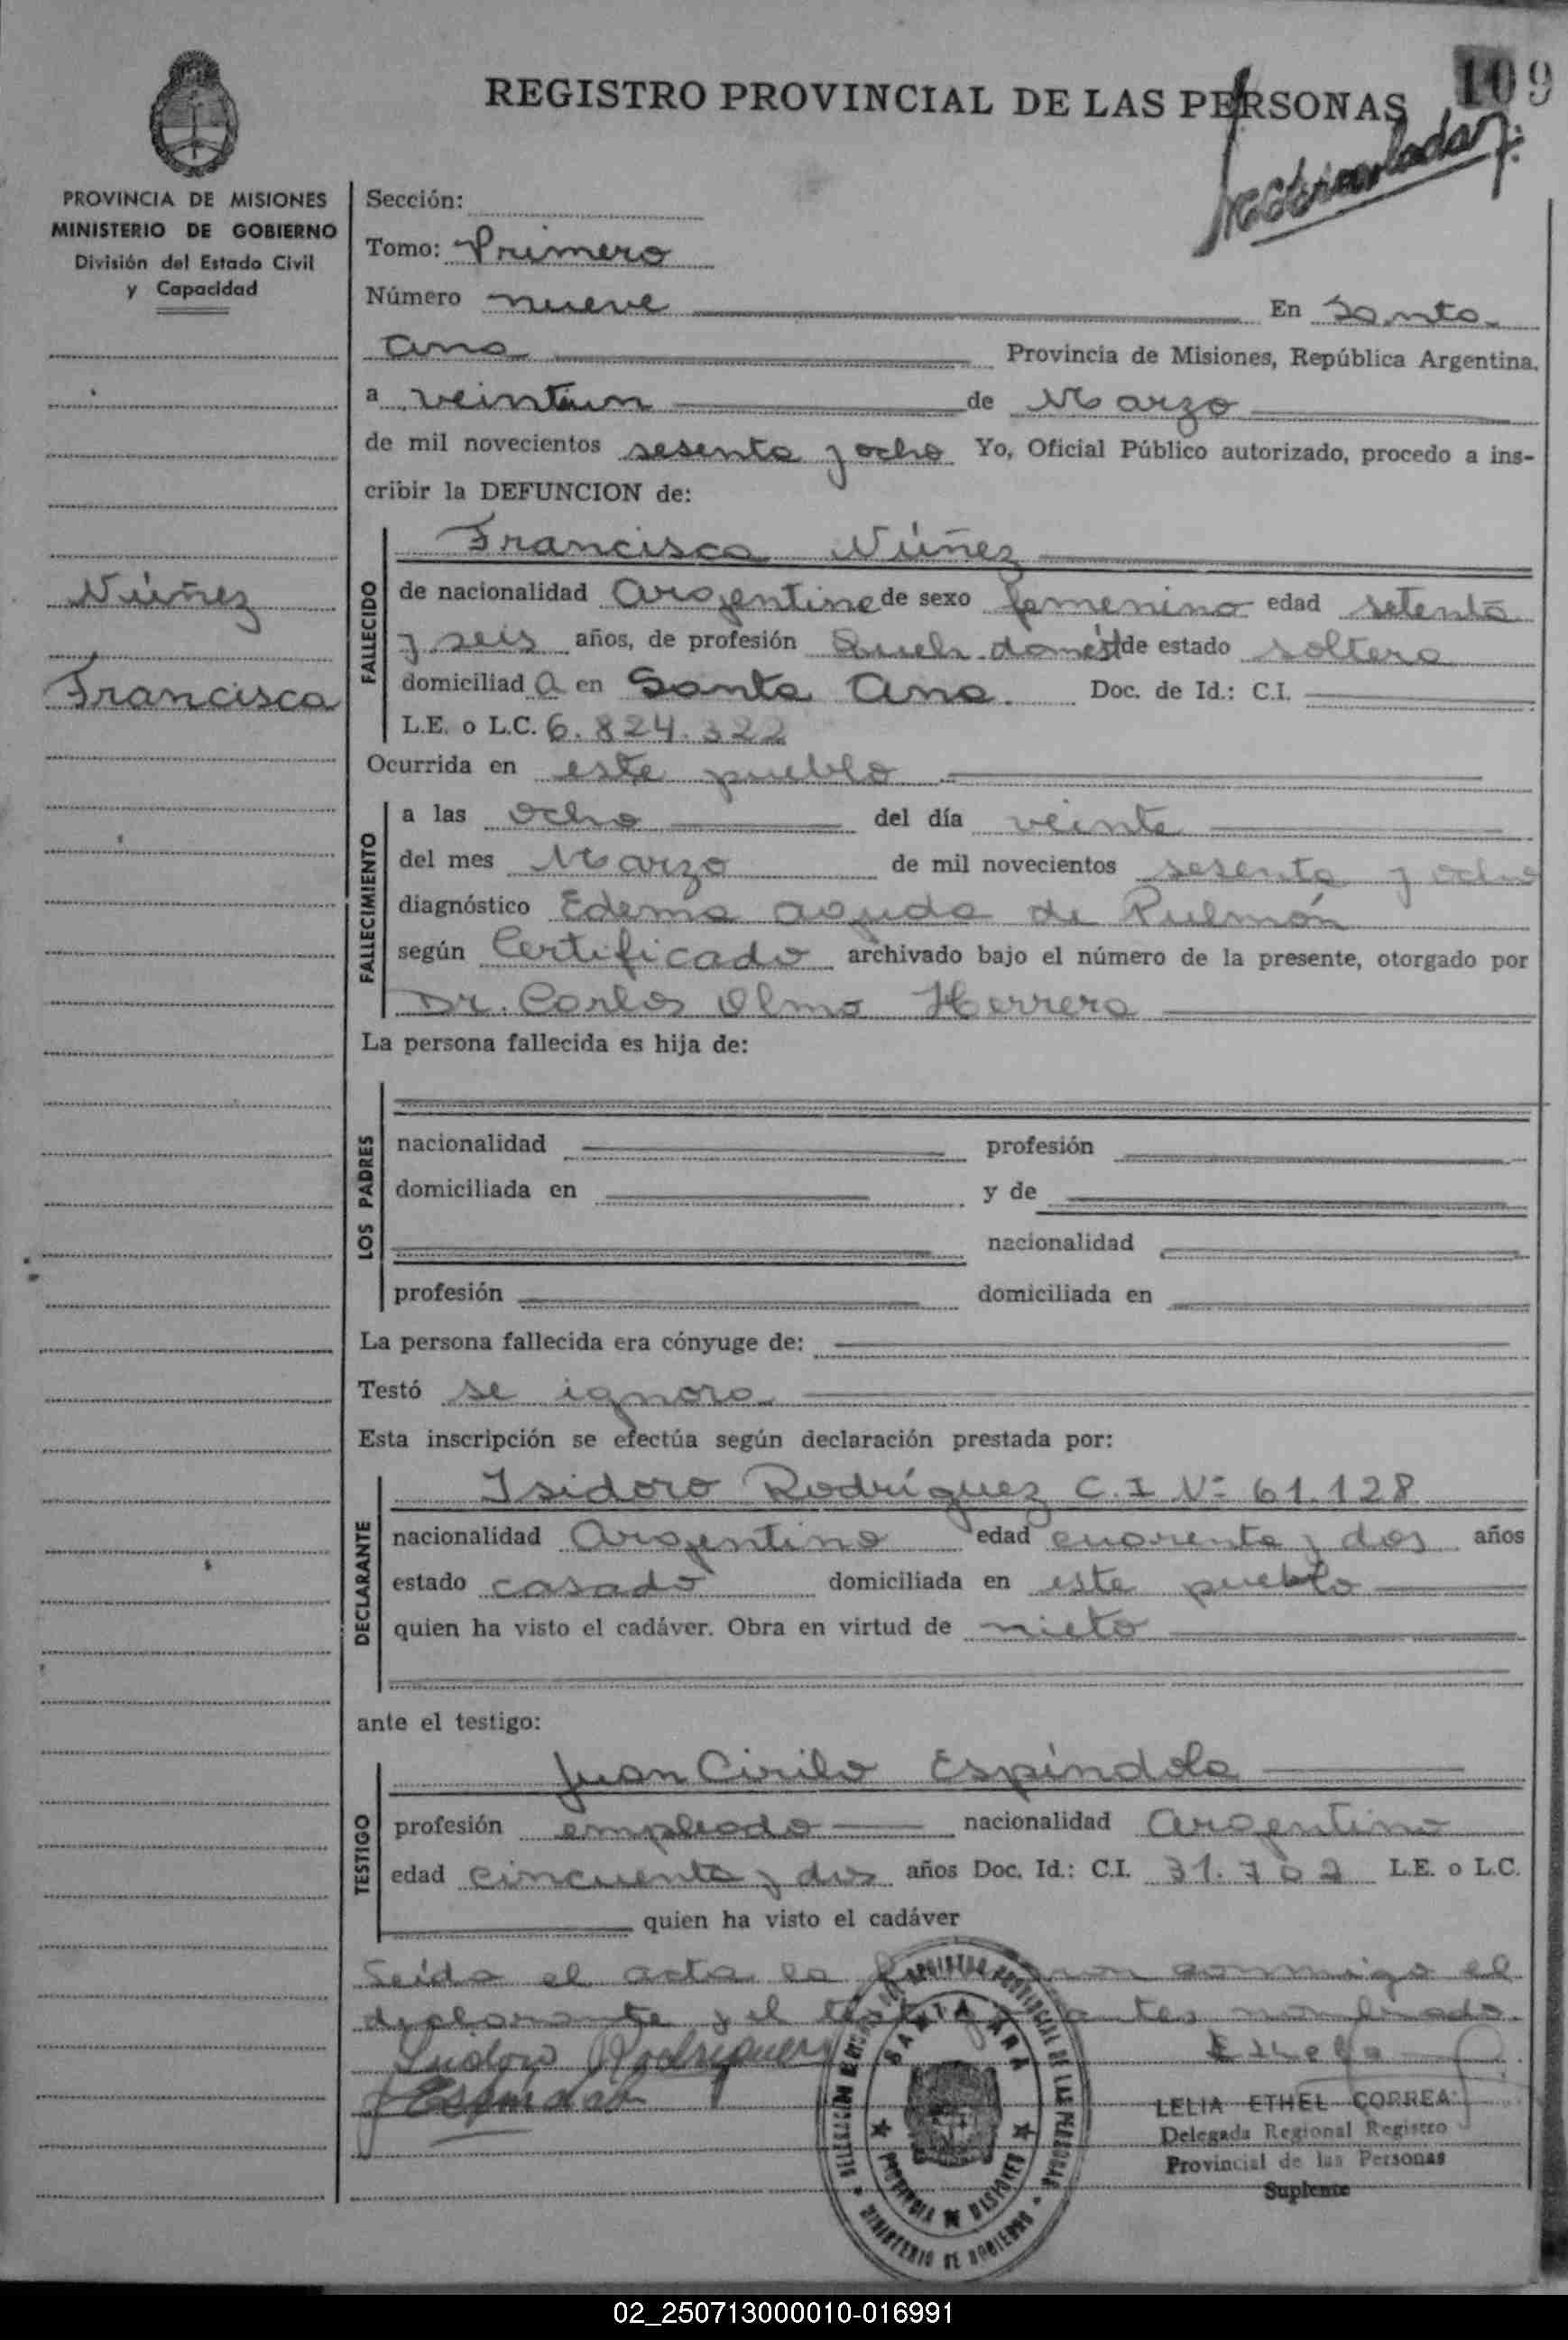 109
REGISTRO PROVINCIAL DE LAS PERSONAS
PROVINCIA DE MISIONES
MINISTERIO DE GOBIERNO
División del Estado Civil
y Capacidad
Sección:
Tomo: Primero
Número nueve En Santa
Ana Provincia de Misiones, República Argentina.
a veintiun de Marzo
de mil novecientos sesenta y ocho Yo, Oficial Público autorizado, procedo a ins-
cribir la DEFUNCION de:
Núñez
Francisca
FALLECIDO
Francisca Núñez
de nacionalidad Argentina de sexo femenino edad setenta
y seis años, de profesión Queh. domést de estado soltera
domiciliad a en Santa Ana. Doc. de Id.: C.I.
L.E. o L.C. 6.824.322
Ocurrida en este pueblo
FALLECIMIENTO
a las ocho del día veinte
del mes Marzo de mil novecientos sesenta y ocho
diagnóstico Edema aguda de Pulmón
según Certificado archivado bajo el número de la presente, otorgado por
Dr. Carlos Olmo Herrera
La persona fallecida es hija de:
LOS PADRES
nacionalidad profesión
domiciliada en y de
nacionalidad
profesión domiciliada en
La persona fallecida era cónyuge de:
Testó se ignora
Esta inscripción se efectúa según declaración prestada por:
DECLARANTE
Isidoro Rodríguez C.I Nº 61.128
nacionalidad Argentino edad cuarenta y dos años
estado casado domiciliada en este pueblo
quien ha visto el cadáver. Obra en virtud de nieto
ante el testigo:
TESTIGO
Juan Cirilo Espíndola
profesión empleado nacionalidad Argentino
edad cincuenta y dos años Doc. Id.: C.I. 31.702 L.E. o L.C.
quien ha visto el cadáver
Leída el acta la conmigo el
declarante y el testigo antes nombrado.
Isidoro Rodriguez
J Espindola
LELIA ETHEL CORREA
Delegada Regional Registro
Provincial de las Personas
Suplente
REGISTRO PROVINCIAL DE LAS PERSONAS
SANTA ANA
PROVINCIA DE MISIONES
MINISTERIO DE GOBIERNO
02_250713000010-016991